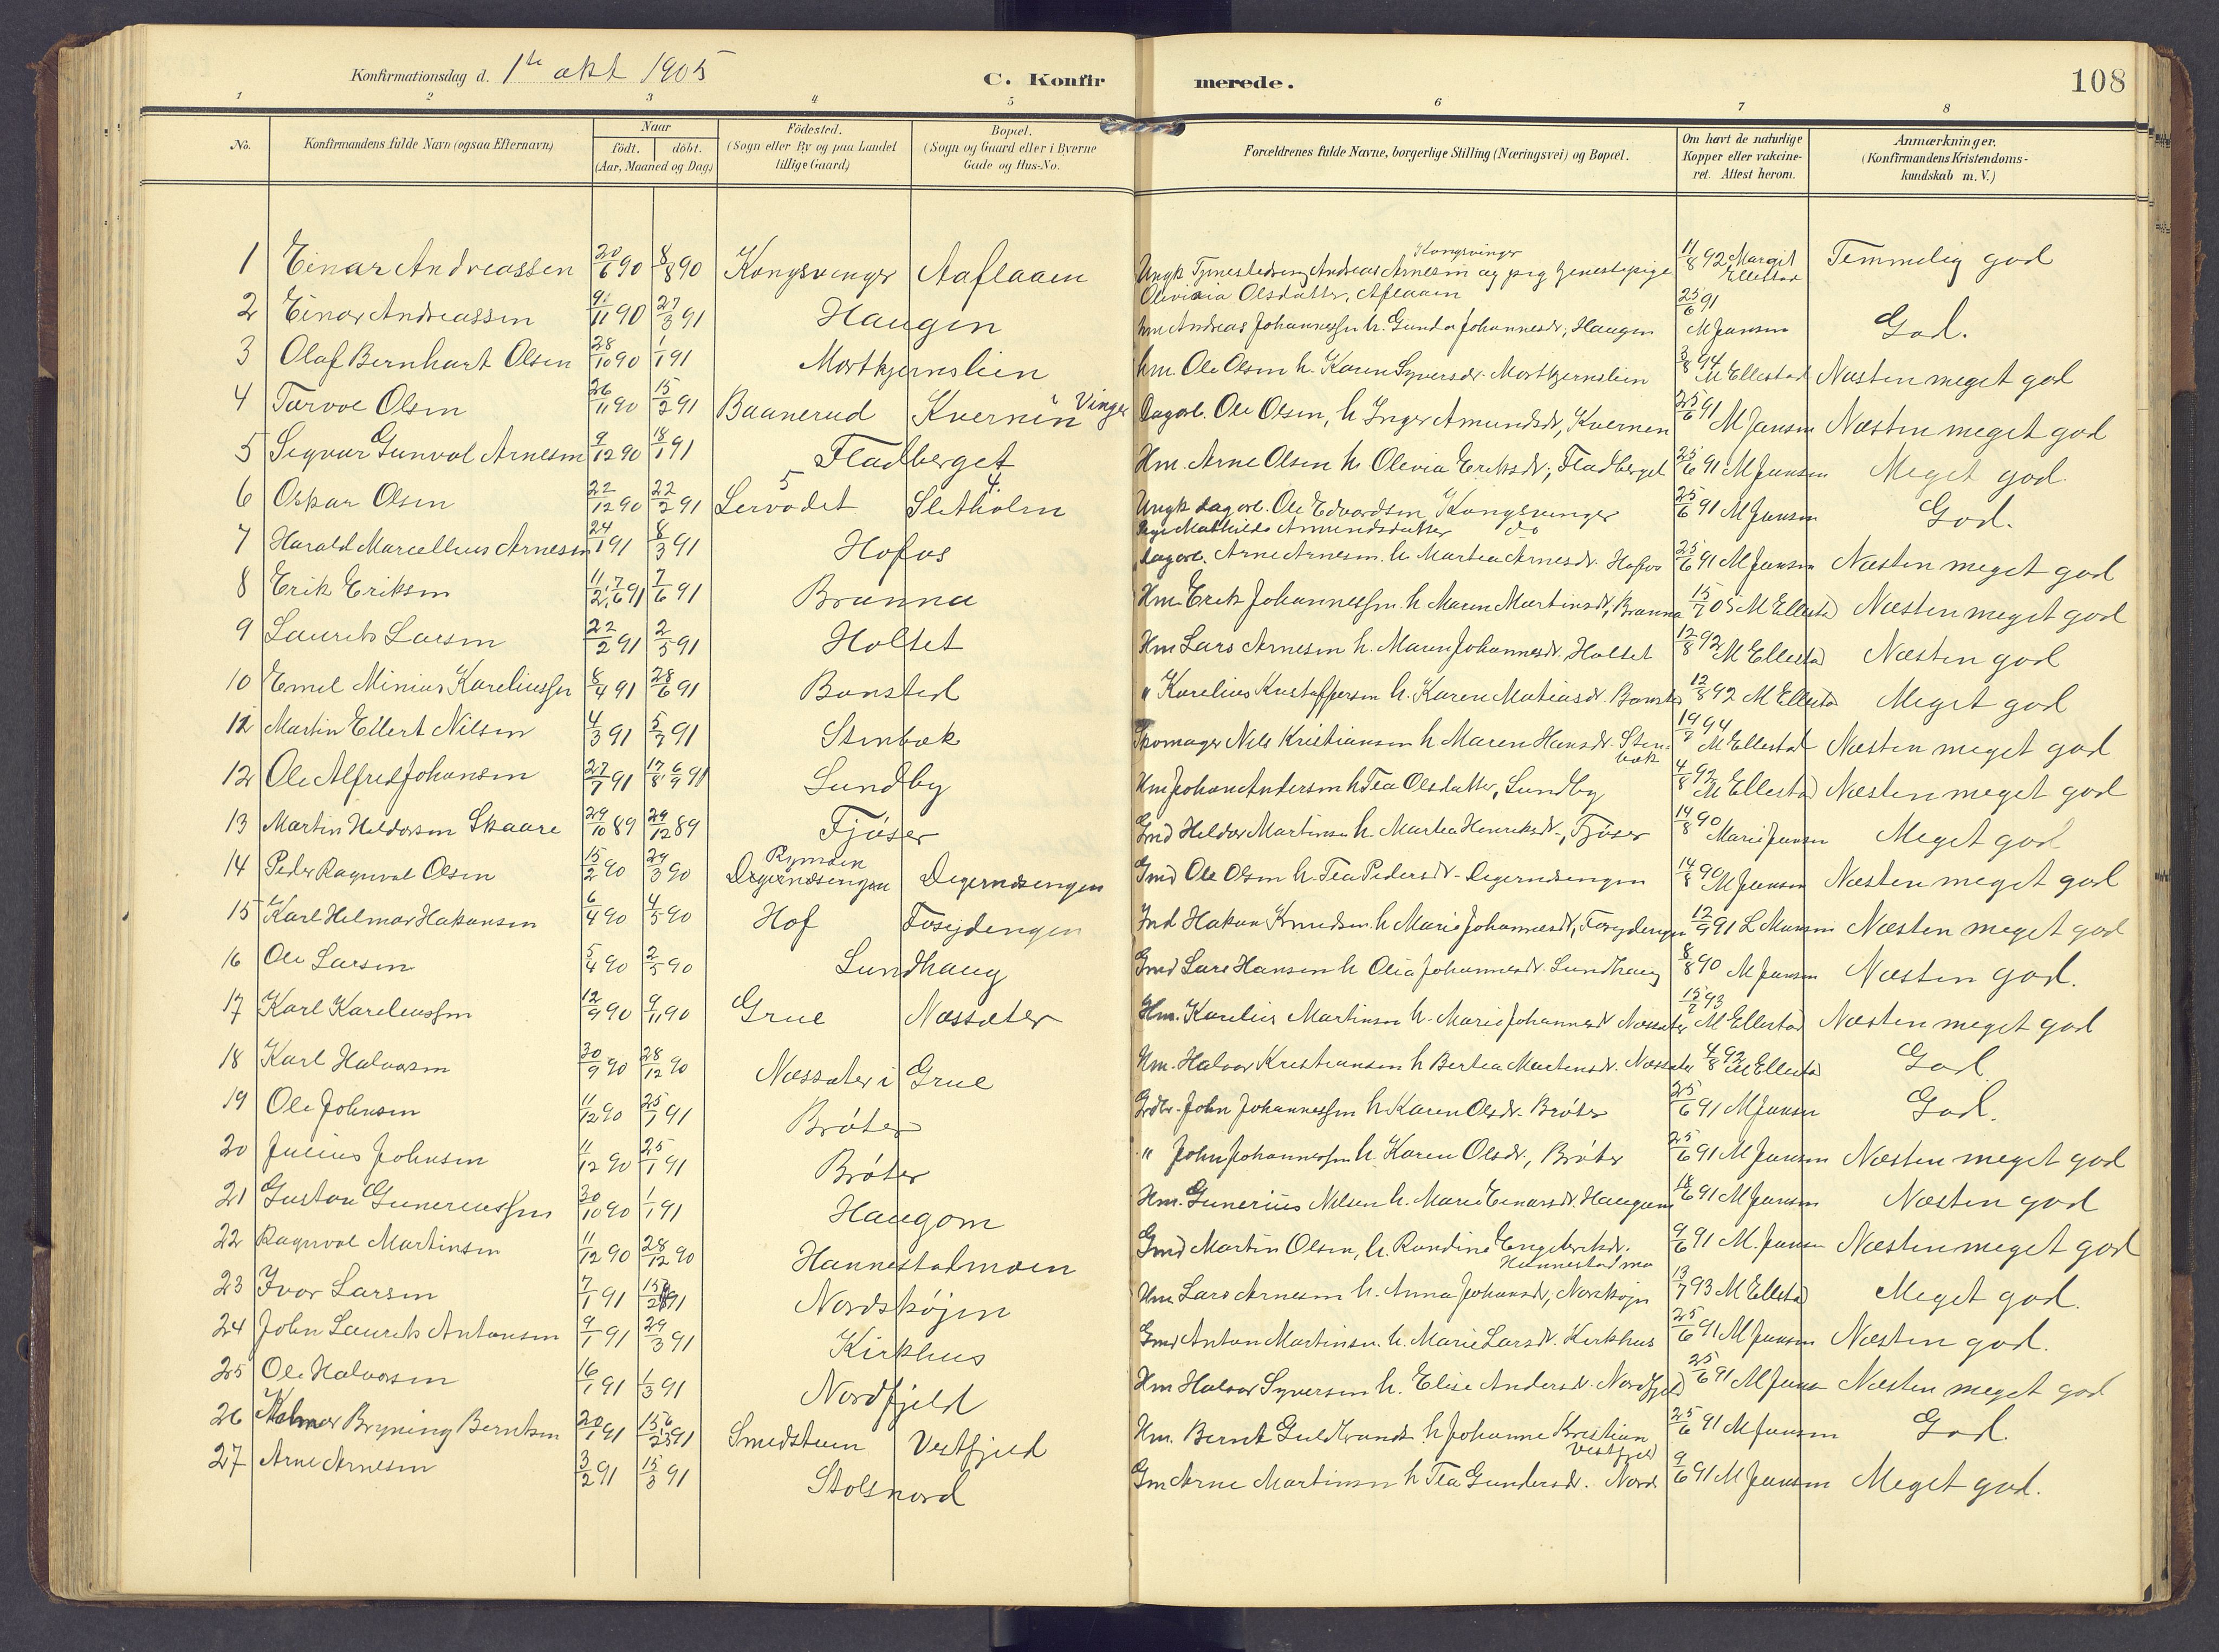 Konfirmationsdag d. 1te okt 1905 C. Konfir merede. 108
1 2 3 4 5 6 7 8
No. Konfirmandens fulde Navn (ogsaa Efternavn) Naar födt. döbt. (Aar, Maaned og Dag) Födested. (Sogn eller By og paa Landet tillige Gaard) Bopæl. (Sogn og Gaard eller i Byerne Gade og Hus-No. Forældrenes fulde Navne, borgerlige Stilling (Næringsvei) og Bopæl. Om havt de naturlige Kopper eller vakcineret. Attest herom. Anmærkninger. (Konfirmandens Kristendomskundskab m. V.)
1 Einar Andreassen 20/6 90 8/8 90 Kongsvinger Aaflaaen Ungk Andreas Arnesen og pig Kongsvinger 11/8 92 Margit Ellestad Temmelig god
Olsdatter, Aflaaen
2 Einar Andreassen 90 27/3 91 Haugen Hm Andreas Johannessen h. Gunda Johannesdr, Haugen 25/6 91 M Jansen God.
3 Olaf Bernhart Olsen 28/10 90 1/1 91 Mortkjernslien Hm. Ole Olsen h. Karen Syversdr. Mortkjernslien 3/8 94 M Ellestad Næsten meget god
4 Olsen 26/11 90 15/2 91 Baanerud Kvernen Vinger Dagarb. Ole Olsen, h Inger Amundsdr, Kvernen 25/6 91 M Jansen Næsten meget god
5 Sigvar Gunval Arnesen 9/12 90 18/1 91 Fladberget Hm. Arne Olsen h Olevia Eriksdr, Fladberget 25/6 91 M Jansen Meget god.
6 Oskar Olsen 22/12 90 22/2 91 5 4. Sletholm Ungk dagarb. Ole Edvardsen Kongsvinger 25/6 91 M Jansen God.
Pige Mathilde Amundsdatter do
7 Harald Marcellius Arnesen 24/1 91 8/3 91 Hofos dagarb. Arne Arnesen h Martea Arnesdr. Hofos 25/6 91 M Jansen Næsten meget god
8 Erik Eriksen 11/2 91 7/6 91 Branna Hm Erik Johannessen h Maren Martinsdr, Branna 15/7 05 M Ellestad Næsten meget god
9 Laurits Larsen 22/2 91 2/5 91 Holtet Hm Lars Arnesen h. Maren Johannesdr. Holtet 12/8 92 M Ellestad Næsten god
10 Emil Minius Kareliussen 8/4 91 28/6 91 Bansted " Karelius Kristoffersen h. Karen Matiasdr. Bansted 12/8 92 M Ellestad Meget god
11 Martin Ellert Nilsen 4/3 91 5/7 91 Stenbæk Skomager Nils Kristiansen h Maren Hansdr. Stenbæk 19/7 94 M Ellestad Næsten meget god
12 Ole Alfred Johansen 27/7 91 17/8, 6/9 91 Sundby Hm Johan Andersen h Tea Olsdatter, Sundby 4/8 92 M Ellestad Næsten meget god
13 Martin Heldorsen Skaare 29/10 89 29/12 89 Fjöser Gmd Heldor Martinsen h. Martea Henriksdr, Fjöser 14/8 90 Marie Jansen Meget god
14 Peder Ragnval Olsen 15/2 90 29/3 90 Rymoen Degernæsengen Degernæsengen Gmd Ole Olsen h. Tea Pedersdr. Degernæsengen 14/8 90 M Jansen Næsten meget god
15 Karl Helmar Hakansen 6/4 90 4/5 90 Hof Fosejdengen Ind Hakan Knudsen h Marie Johannesdr, 12/9 91 L Munsen Næsten meget god
16 Ole Larsen 5/4 90 2/5 90 Lundhaug Gmd Lars Hansen h Olia Johannesdr. Lundhaug 8/8 90 M Jansen Næsten god.
17 Karl Kareliussen 12/9 90 9/11 90 Grue Næssæter Hm. Karelius Martinsen h. Marie Johannesdr Næssæter 15/7 93 M Ellestad Næsten meget god
18 Karl Halvorsen 30/9 90 28/12 90 Næssæter i Grue Hm. Halvor Kristiansen h Bertea Martinsdr. Næssæter 4/8 92 M Ellestad God
19 Ole Johnsen 11/12 90 25/1 91 Bröter Grdbr. John Johannessen h Karen Olsdr. Bröter 25/6 91 M Jansen God.
20 Julius Johnsen 11/12 90 25/1 91 Bröter " John Johannessen h. Karen Olsdr., Bröter 25/6 91 M Jansen Næsten meget god
21 Gustav Gunereussen 30/10 90 1/1 91 Haugom Hm. Gunerius Nilsen h. Marie Einarsdr. Haugom 18/6 91 M Jansen Næsten god
22 Ragnval Martinsen 11/12 90 28/12 90 Hannestadmoen Gmd Martin Olsen, h. Randine Engebretsdr. Hannestadmo 9/6 91 M. Jansen Næsten meget god
23 Ivar Larsen 7/1 91 15/2 91 Nordskøjen Hm Lars Arnesen h. Anna Johansdr, Norskøjn 13/7 93 M Ellestad Meget god.
24 John Laurits Antonsen 9/1 91 29/3 91 Kirkhus Gmd Anton Martinsen. h. Marie Larsdr. Kirkhus 25/6 91 M Jansen Næsten god.
25 Ole Halvorsen 16/1 91 1/3 91 Nordfjeld Hm Halvor Syversen h. Elise Andersdr. Nordfjeld 25/6 91 M Jansen Næsten meget god
26 Bryning Berntsen 20/1 91 91 Smedstuen Vestfjeld Hm. Bernt Guldbrands h Johanne Kristian Vestfjeld 25/6 91 M Jansen God.
27 Arne Arnesen 3/2 91 15/3 91 Stolsnord Gm Arne Martinsen h Tea Gundersdr. Nord 9/6 91 M Jansen Meget god.